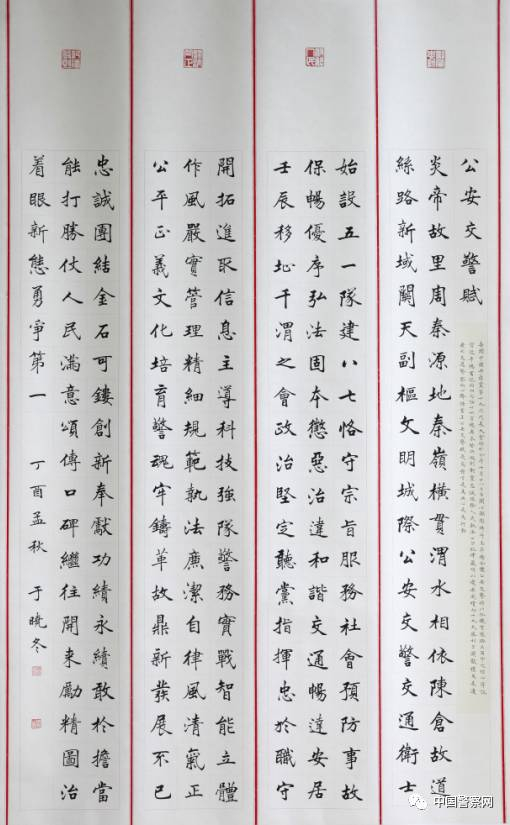 公安交警賦
炎帝故里周秦源地秦嶺橫貫渭水相依陳倉故道
絲路新域關天副樞文明城際公安交警交通衛士
始設五一隊建八七恪守宗旨服務社會預防事故
保暢優序弘法固本懲惡治違和諧交通暢達安居
壬辰移址千渭之會政治堅定聽黨指揮忠於職守
開拓進取信息主導科技強隊警務實戰智能立體
作風嚴實管理精細規範執法廉潔自律風清氣正
公平正義文化培育警魂牢鑄革故鼎新發展不已
忠誠團結金石可鏤創新奉獻功績永續敢於擔當
能打勝仗人民滿意頌傳口碑繼往開來勵精圖治
着眼新態勇爭第一 丁酉孟秋 于曉冬
中国警察网